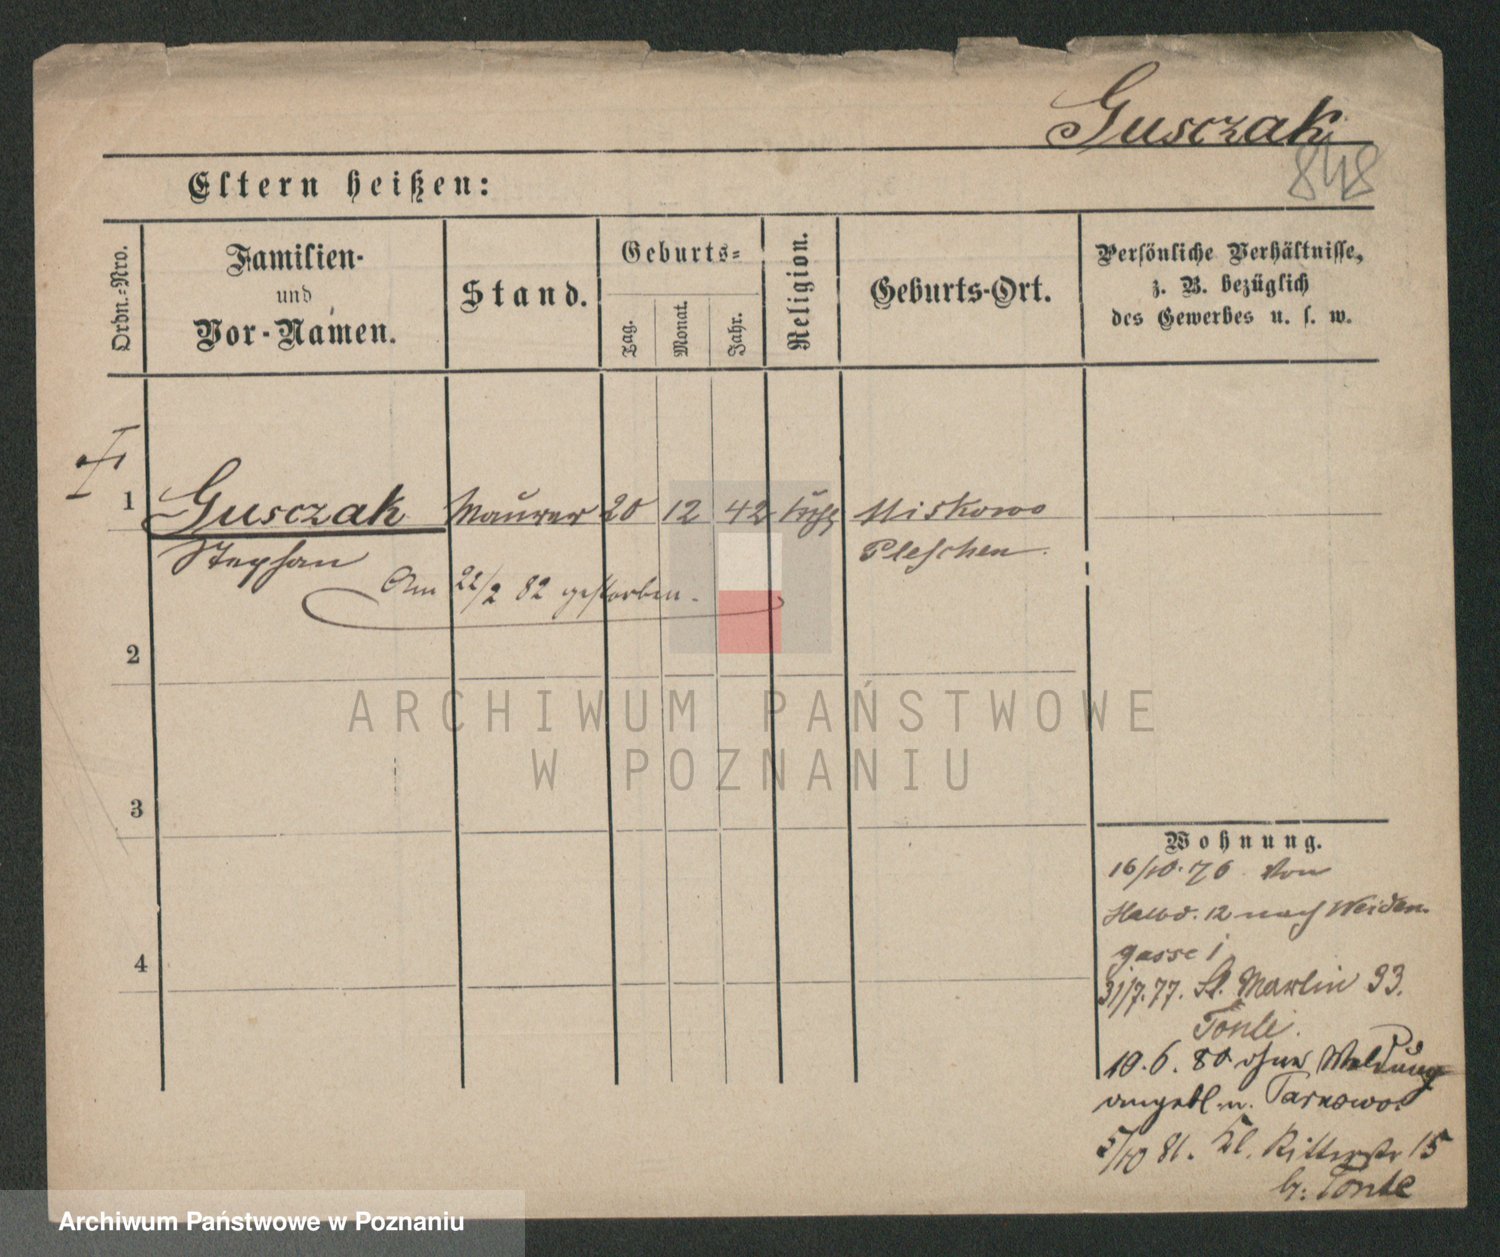 Gusczak
848
Eltern heißen:
Ordn.-Nro.
Familien-
und
Vor-Namen.
Stand.
Geburts-
Tag.
Monat.
Jahr.
Religion.
Geburts-Ort.
Persönliche Verhältnisse,
z. B. bezüglich
des Gewerbes u. s. w.
1 Gusczak Maurer 20 12 42 kath Miskowo
Stephan Pleschen.
Am 22/2 82 gestorben.
2
3
4
Wohnung.
16/10.76 von
Halbd. 12 nach Weiden-
gasse 1
31/7.77. St. Martin 33.
10.6.80 ohne Meldung
angebl. n. Tarnowo.
5/10 81. Kl. Ritterstr 15
b.
ARCHIWUM PAŃSTWOWE
W POZNANIU
Archiwum Państwowe w Poznaniu